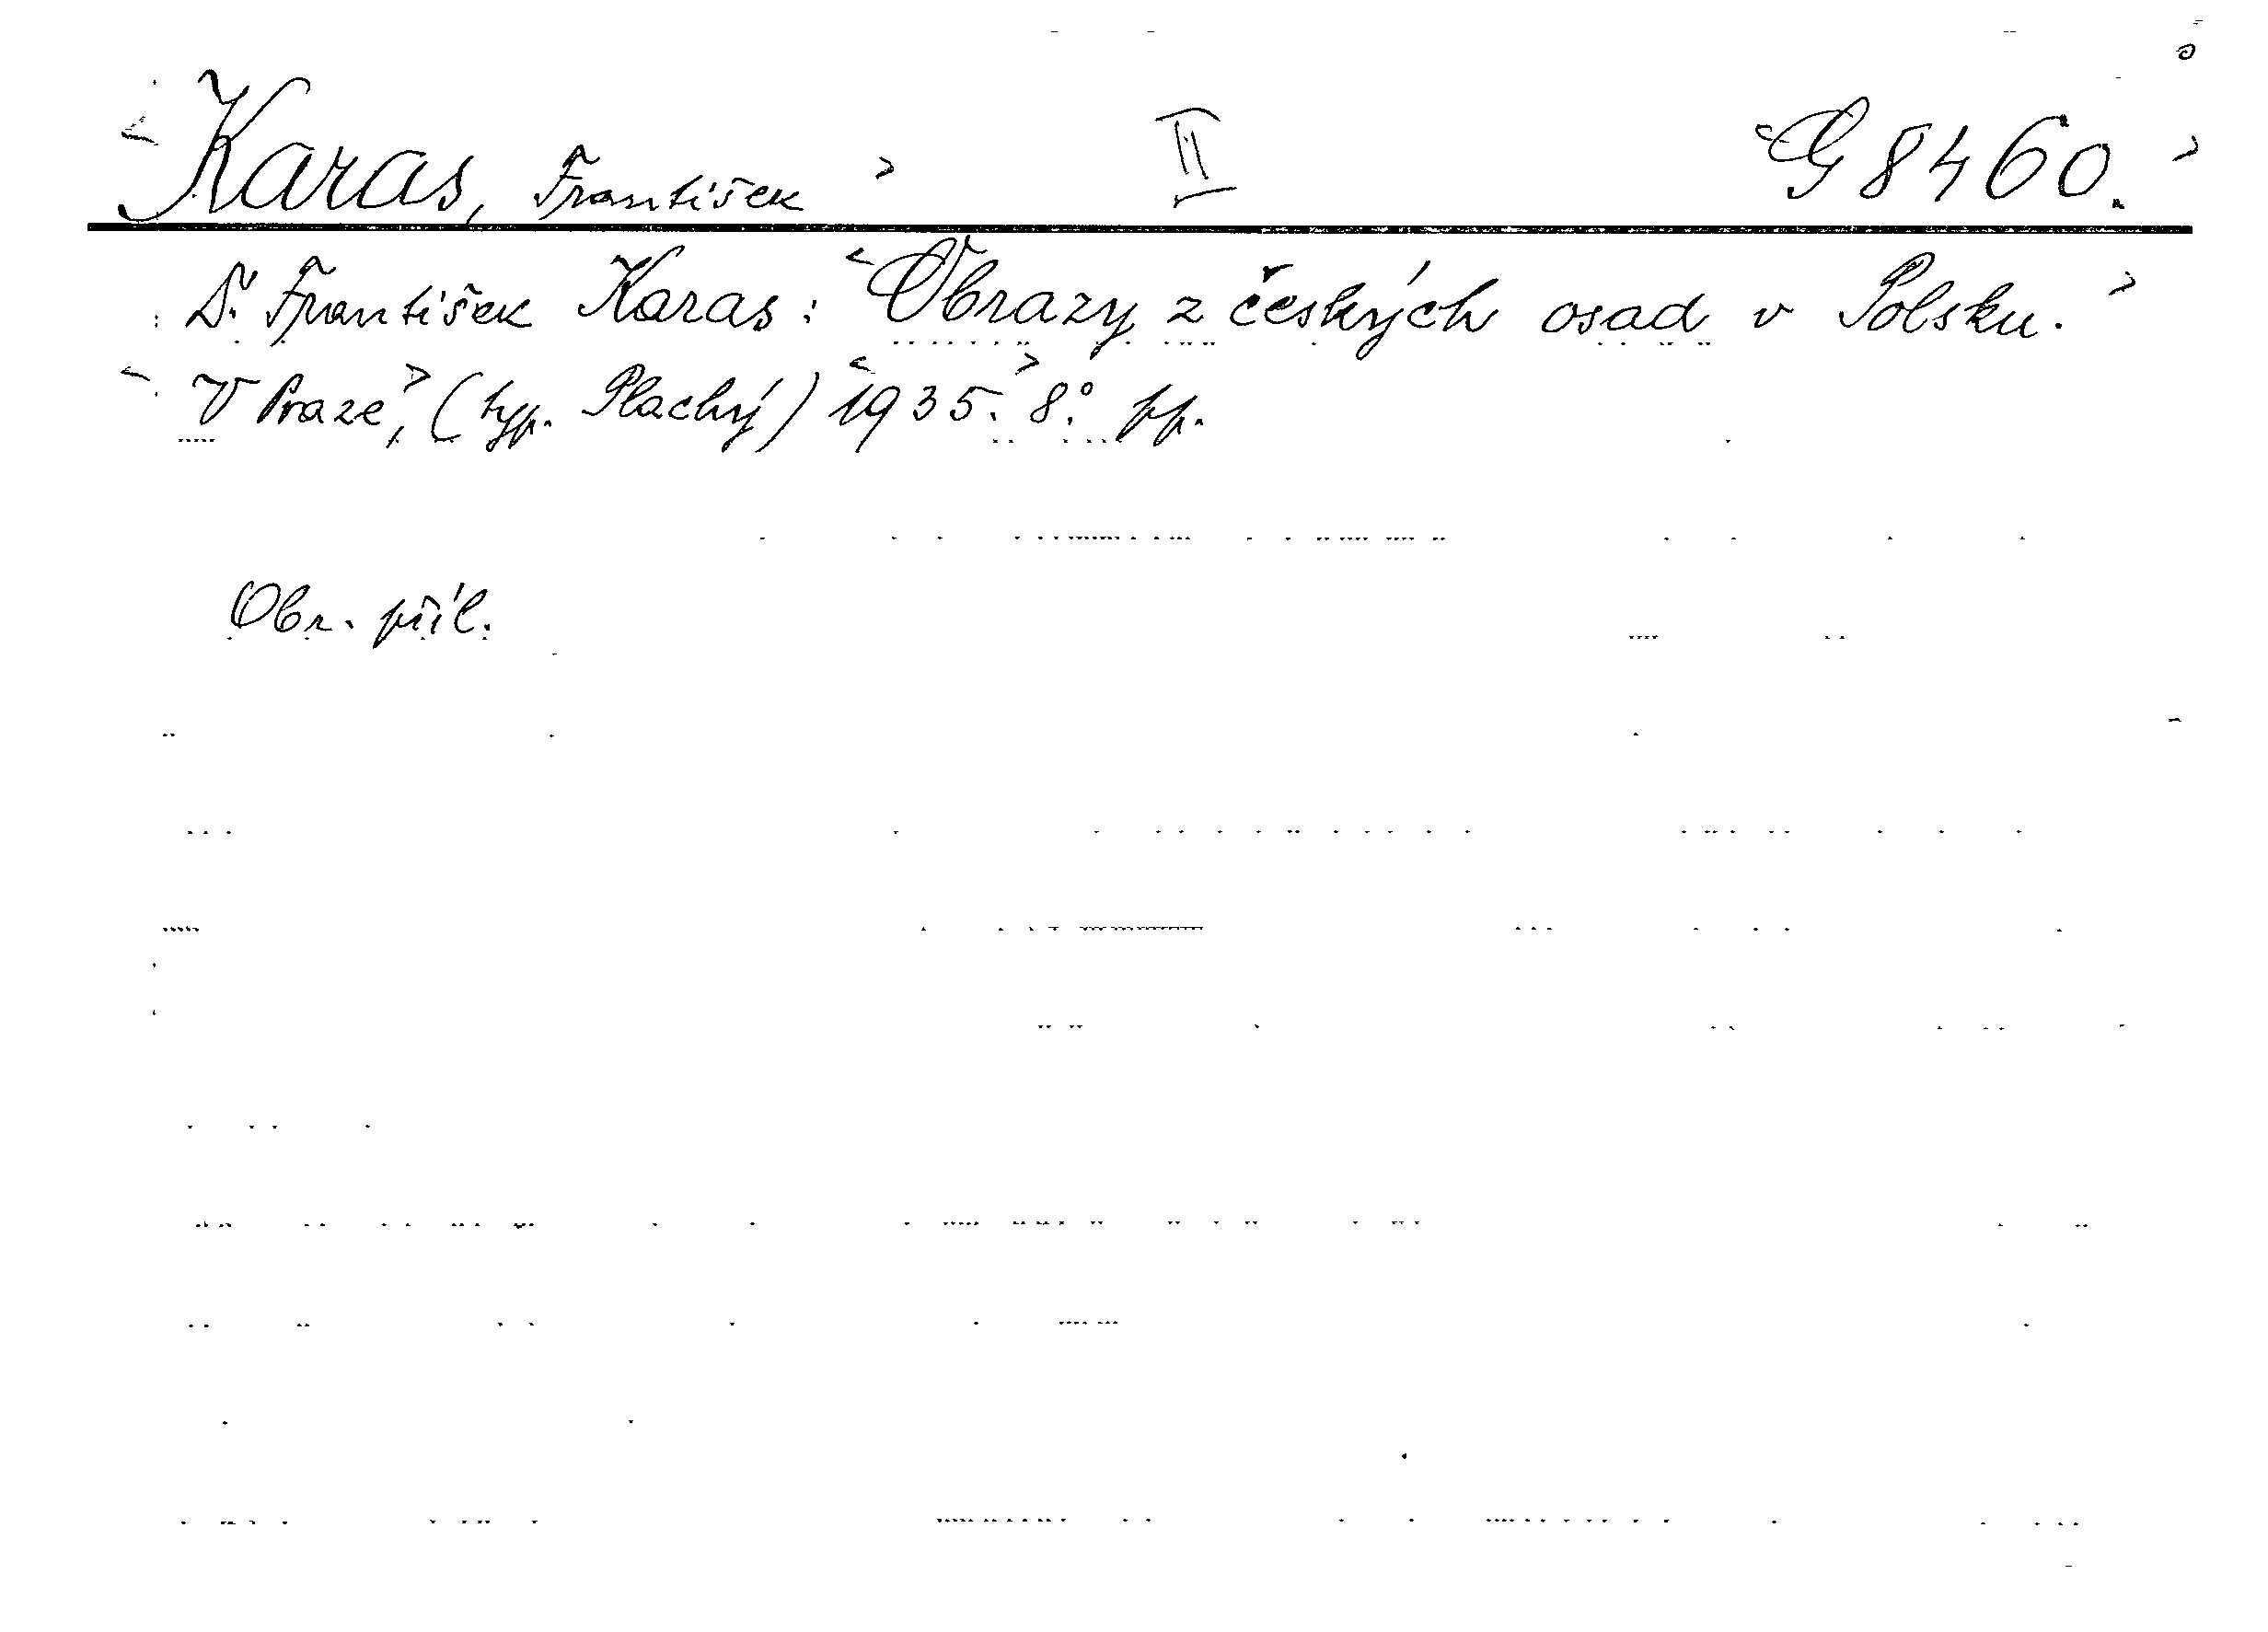 <Karas, František> II <G 8460.>
Dr. František Karas: <Obrazy z českých osad v Polsku.>
<V Praze,> (typ. Plachý) <1935.> 8.° pp.
Obr. příl.